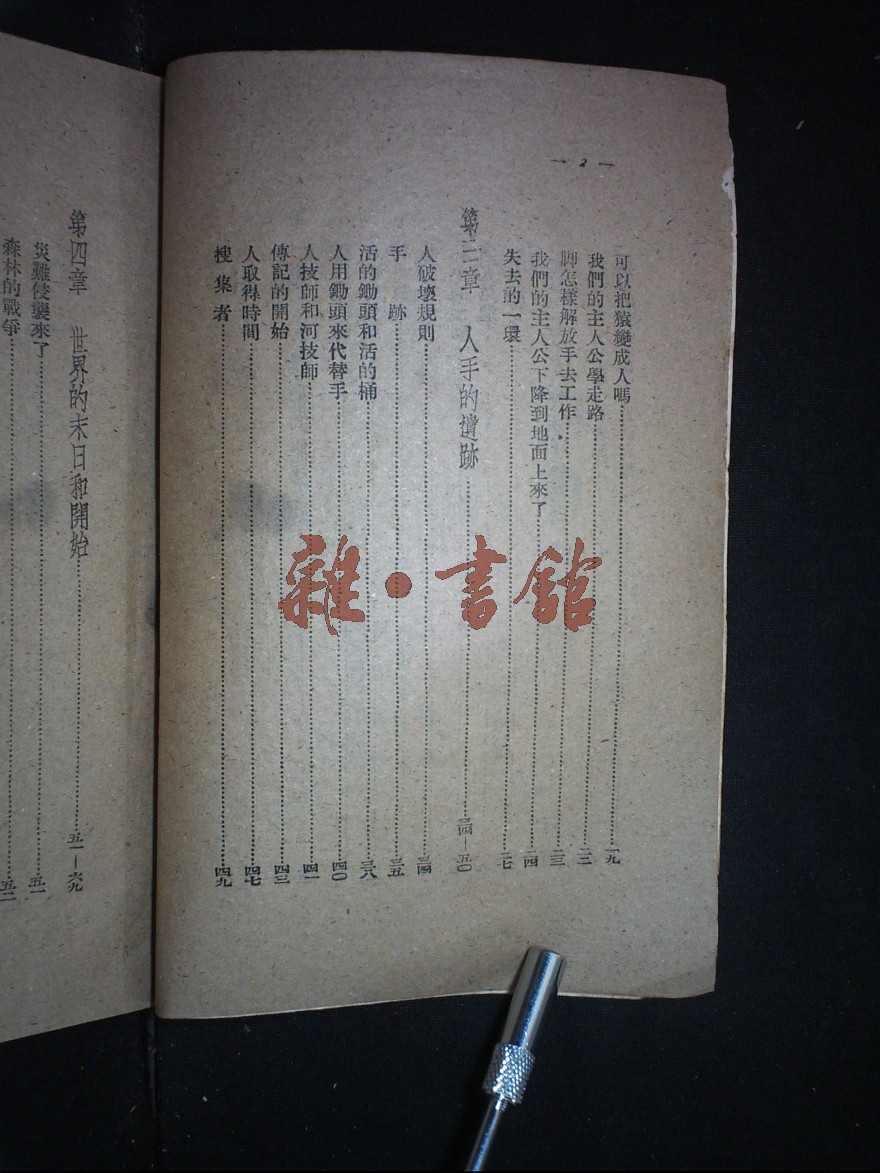 — 2 —
可以把猿變成人嗎 一九
我們的主人公學走路 二二
脚怎樣解放手去工作 二三
我們的主人公下降到地面上來了 二四
失去的一環 二七
第三章 人手的遺跡 三四—五〇
人破壞規則 三四
手跡 三五
活的鋤頭和活的桶 三八
人用鋤頭來代替手 四〇
人技師和河技師 四一
傳記的開始 四三
人取得時間 四七
搜集者 四九
第四章 世界的末日和開始 五一—六九
災難侵襲來了 五一
森林的戰爭 五二
雜·書館